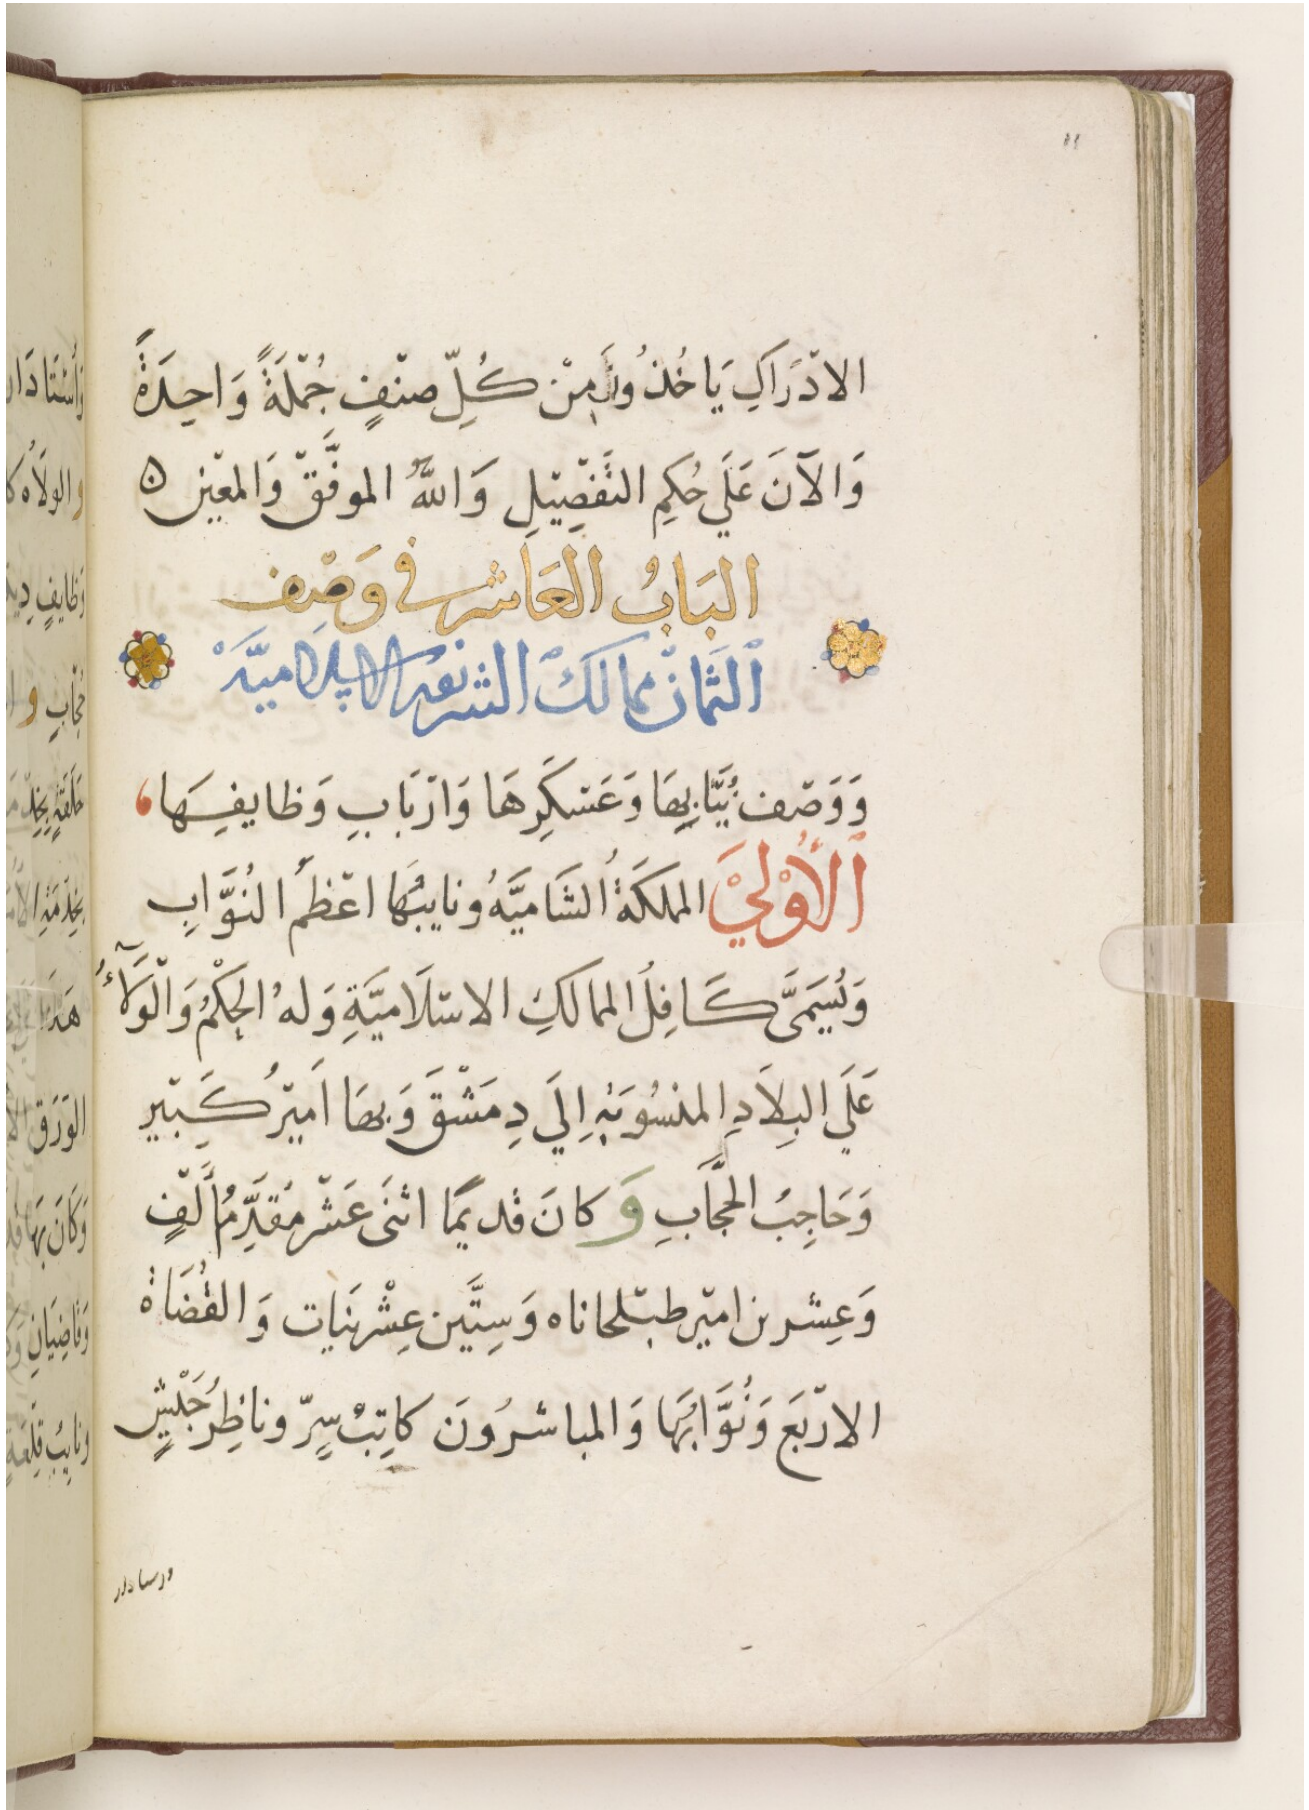 الادْرَاكِ يَاخُذُونَ مِنْ كُلِّ صنْفٍ جُمْلَةً وَاحِدَةً
وَالآنَ عَلَي حُكمِ التَّفَصِيْلِ وَاللهُ الموفَّقْ وَالمعِيْن ۞
البَابُ العَاشر في وَصْف
الثمَانْ ممالكْ الشريفه الاسلاميَّة
وَوَصْف نُيَّابِهَا وَعَسْكَرِهَا وَارْبَابِ وَظايفِهَا
الأُوْلَيْ المملكَةُ الشَاميَّهُ ونايبُهَا اعْظمُ النُوَّابِ
وَيُسَمَّى كَافِلُ الممالكِ الاسْلَاميَّةِ وَلهُ الحِكْمُ وَالْوَلَآءُ
عَلَي البِلَادِ المنسُوبَةِ اِلَي دِمَشْقَ وَبهَا اَمِيْرُ كَبِيْرِ
وَحَاجِبُ الحجَّابِ وَكانَ قديمًا اثنَى عَشْر مُقَدِّمُ أَلْفٍ
وَعِشرين اميْر طبْلخاناه وَسِتَّين عِشْرينَات وَالقُضَاةْ
الارْبَعَ وَنُوَّابُهَا وَالمباشرُونَ كاتِبْ سِرّ وناظِرُ جَيْشٍ